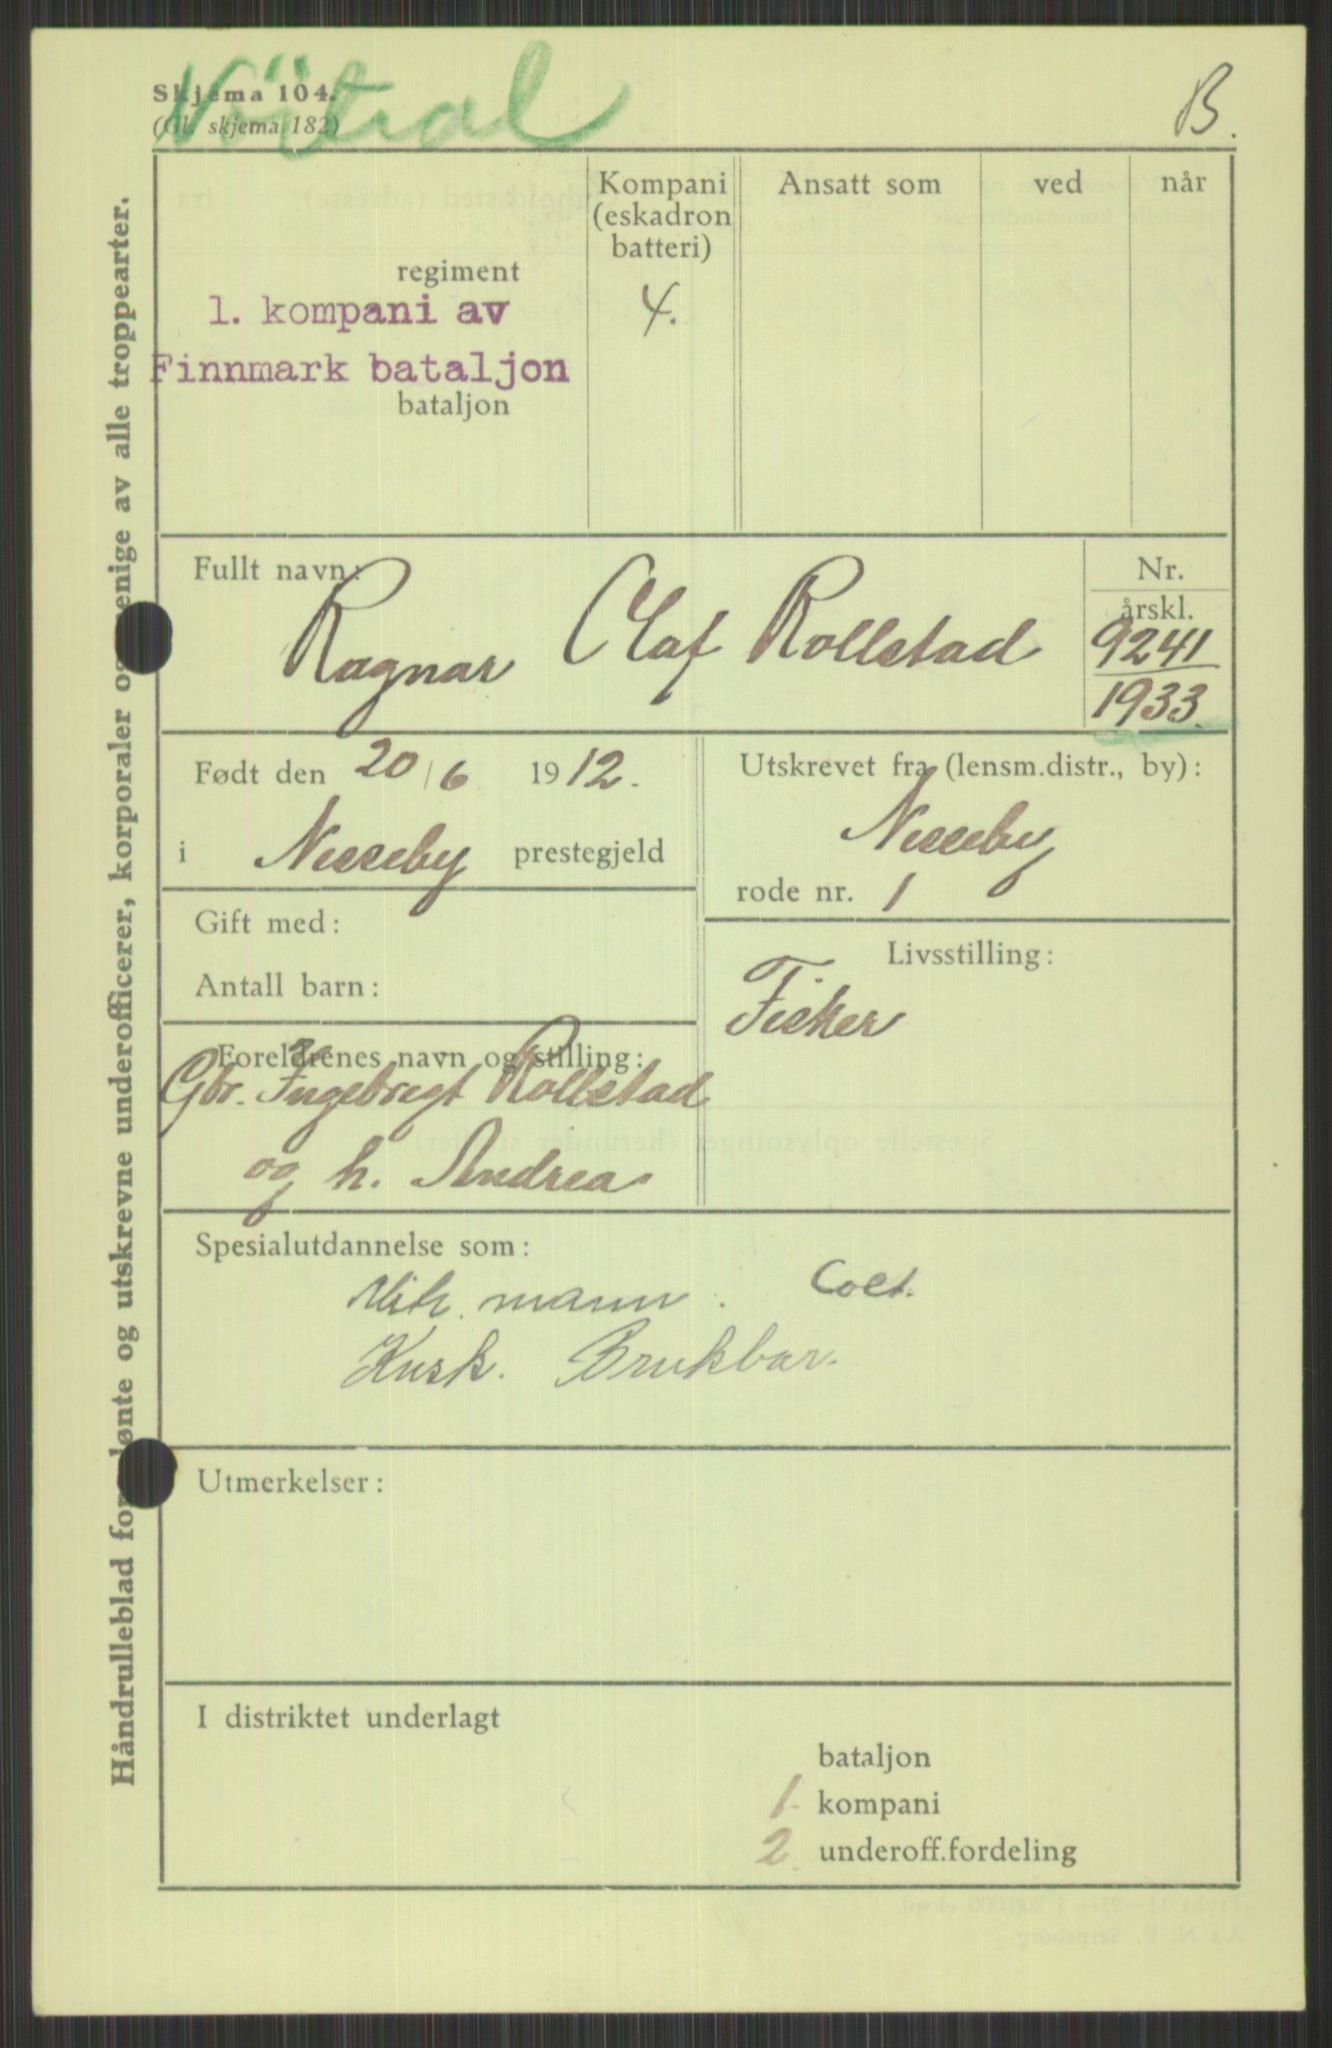 Skjema 104.
(Gl. skjema 182)
B.
Håndrulleblad for lønte og utskrevne underofficerer, korporaler og menige av alle troppearter.
Kompani (eskadron batteri)
Ansatt som
ved
når
regiment
1. kompani av
4.
Finnmark bataljon
bataljon
Fullt navn:
Ragnar Olaf Rollstad
Nr.
årskl.
9241
1933.
Født den 20/6 1912.
i Nesseby prestegjeld
Utskrevet fra (lensm.distr., by):
Nesseby
rode nr. 1
Gift med:
Antall barn:
Livsstilling:
Fisker
Foreldrenes navn og stilling:
Gbr. Ingebrigt Rollstad
og h. Andrea
Spesialutdannelse som:
Mitr. mann. Colt.
Kusk. Brukbar.
Utmerkelser:
I distriktet underlagt
bataljon
1. kompani
2. underoff.fordeling